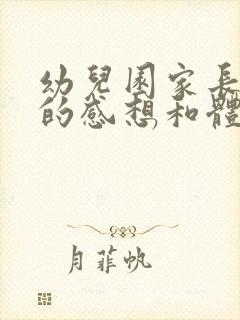 幼兒園家長
的感想和體
月菲帆